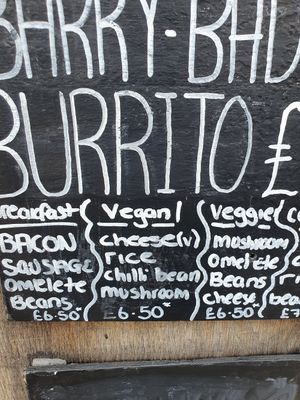 BARRY-BAD
BURRITO £
Breakfast
BACON
SAUSAGE
OMELETE
Beans
£6.50
Vegan
cheese(v)
rice
chilli bean
mushroom
£6.50
Veggie
mushroom
Omelete
Beans
cheese
£6.50
£7